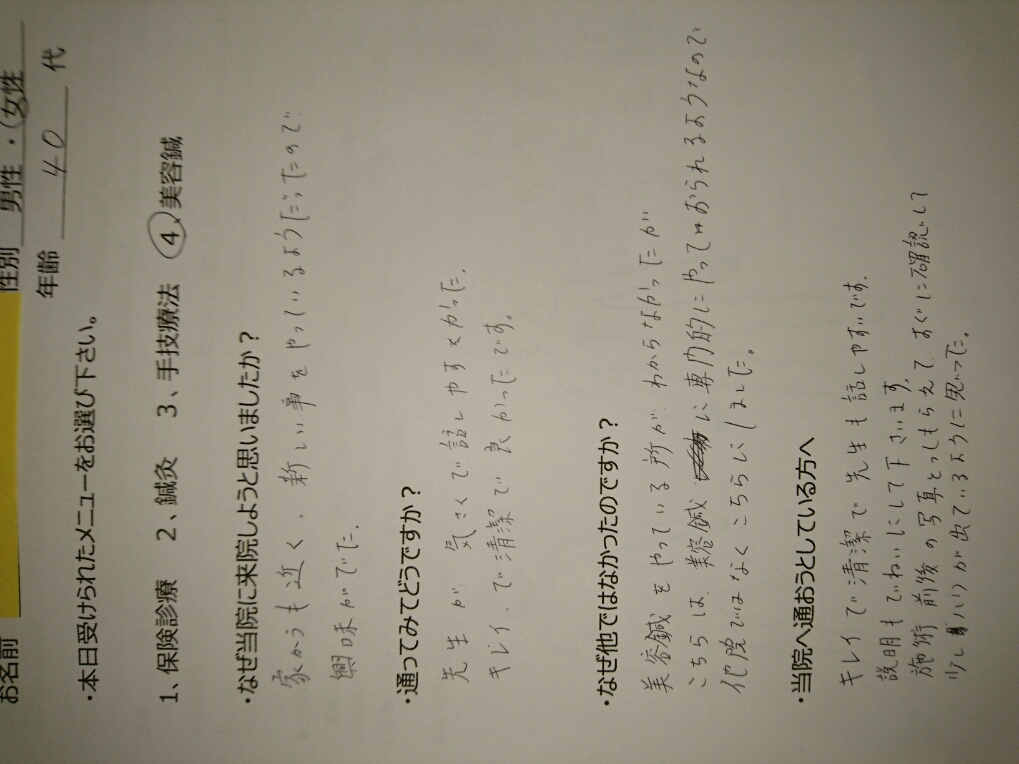 お名前
性別 男性 ・ 女性
年齢 40 代
・本日受けられたメニューをお選び下さい。
1、保険診療 2、鍼灸 3、手技療法 4、美容鍼
・なぜ当院に来院しようと思いましたか？
家からも近く、新しい事をやっているようだったので
興味がでた。
・通ってみてどうですか？
先生が 気さくで話しやすかった。
キレイ、で清潔で良かったです。
・なぜ他ではなかったのですか？
美容鍼をやっている所が、わからなかったが
こちらは、美容鍼 に専門的にやっておられるようなので
他院ではなくこちらにしました。
・当院へ通おうとしている方へ
キレイで清潔で先生も話しやすいです。
説明もていねいにして下さいます。
施術前後の写真とってもらえて すぐに確認して
少しハリが出ているように思った。